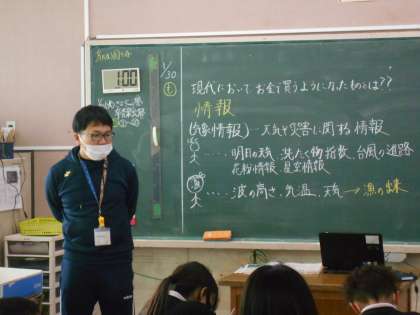 1/30
1:00
現代において お金で買うようになったものとは??
情報
(気象情報)―天気や災害に関する情報
‥‥明日の天気、洗たく物指数、台風の進路
花粉情報、星空情報
‥‥波の高さ、気温、天気 → 漁の